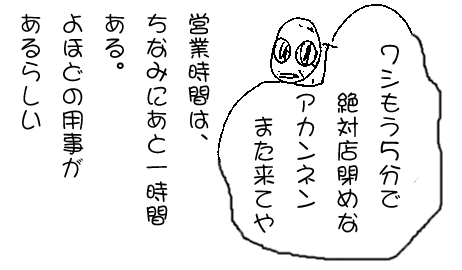 ワシもう5分で
絶対店閉めな
アカンネン
また来てや
営業時間は、
ちなみにあと一時間
ある。
よほどの用事が
あるらしい